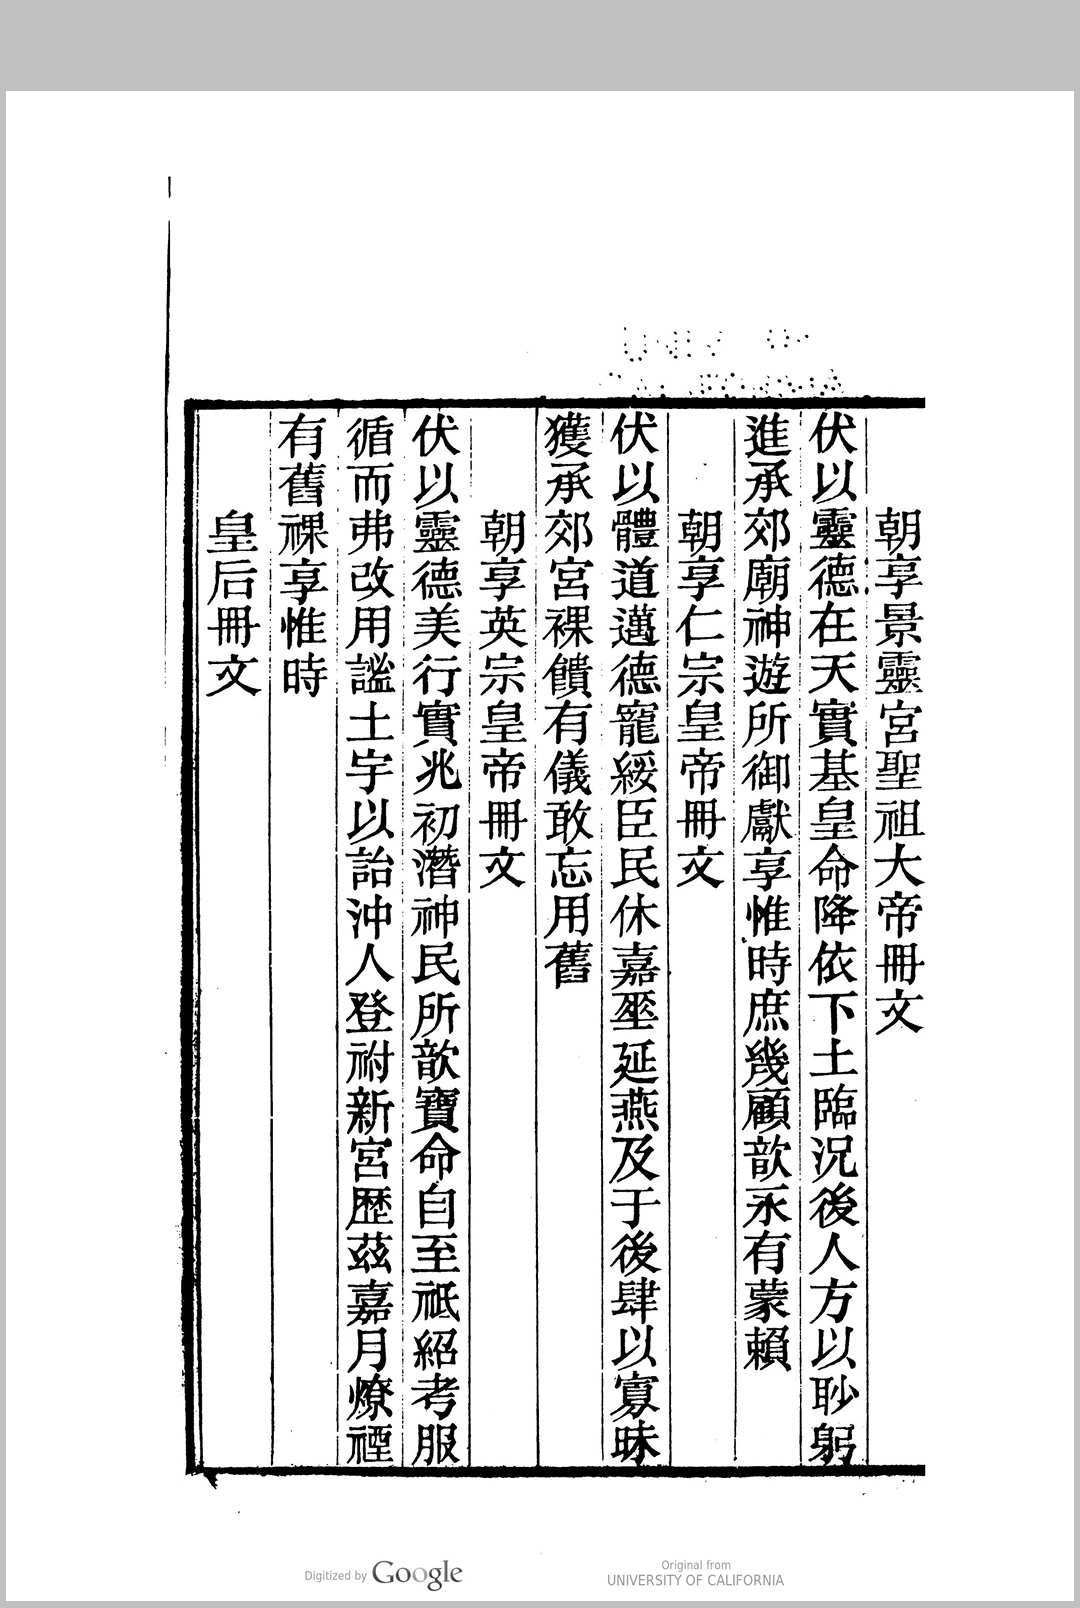 朝享景靈宮聖祖大帝冊文
伏以靈德在天實基皇命降依下土臨況後人方以眇躬
進承郊廟神遊所御獻享惟時庶幾顧歆永有蒙賴
朝享仁宗皇帝冊文
伏以體道邁德寵綏臣民休嘉坙延燕及于後肆以寡昧
獲承郊宮祼饋有儀敢忘用舊
朝享英宗皇帝冊文
伏以靈德美行實兆初潛神民所歆寶命自至祗紹考服
循而弗改用謐土宇以詒沖人登祔新宮歷茲嘉月燎禋
有舊祼享惟時
皇后冊文
Digitized by Google
Original from
UNIVERSITY OF CALIFORNIA